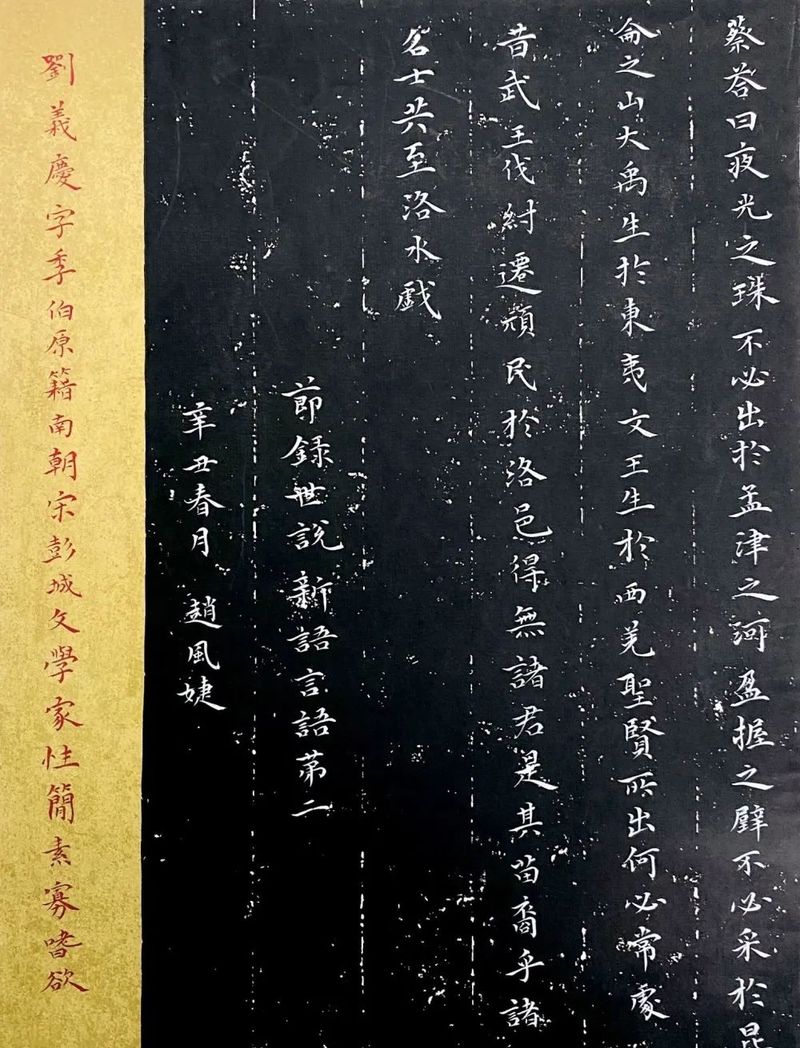 蔡荅曰夜光之珠不必出於孟津之河盈握之璧不必采於昆
侖之山大禹生於東夷文王生於西羌聖賢所出何必常處
昔武王伐紂遷頑民於洛邑得無諸君是其苗裔乎諸
名士共至洛水戲
節録世說新語言語第二
辛丑春月 趙風婕
劉義慶字季伯原籍南朝宋彭城文學家性簡素寡嗜欲